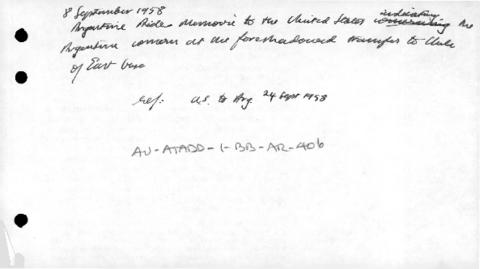 8 September 1958
Argentine Aide Memoire to the United States indicating the
Argentine concern at the foreshadowed transfer to Chile
of East base
Ref: U.S. to Arg 24 Sept 1958
AU-ATADD-1-BB-AR-406